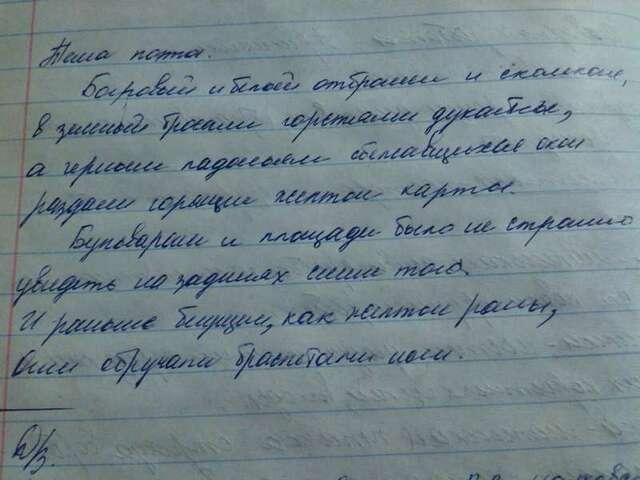 Тема поэта.
Багровый и белый отброшен и скомкан,
в зеленый бросали горстями дукаты,
а черным ладоням сбежавшихся окон
раздали горящие желтые карты.
Бульварам и площади было не странно
увидеть на зданиях синие тоги.
И раньше бегущим, как желтые раны,
Огни обручали браслетами ноги.
Д/з.